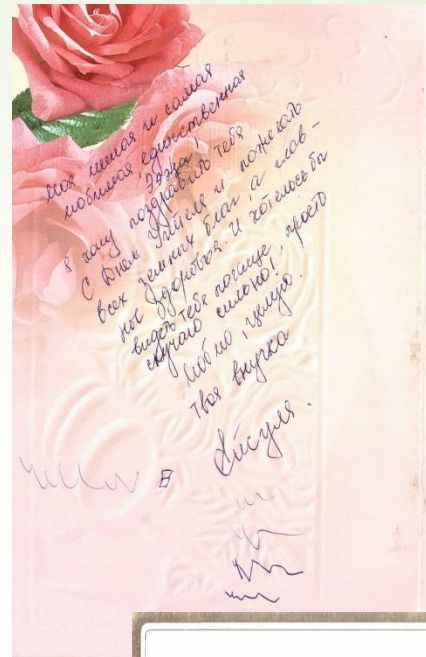 Моя милая и самая
любимая единственная
Эджа,
я хочу поздравить тебя
С Днем Учителя и пожелать
всех земных благ, а глав-
ное Здоровья. И хотелось бы
видеть тебя почаще, просто
скучаю сильно!
люблю, целую.
Твоя внучка
Айсуля.